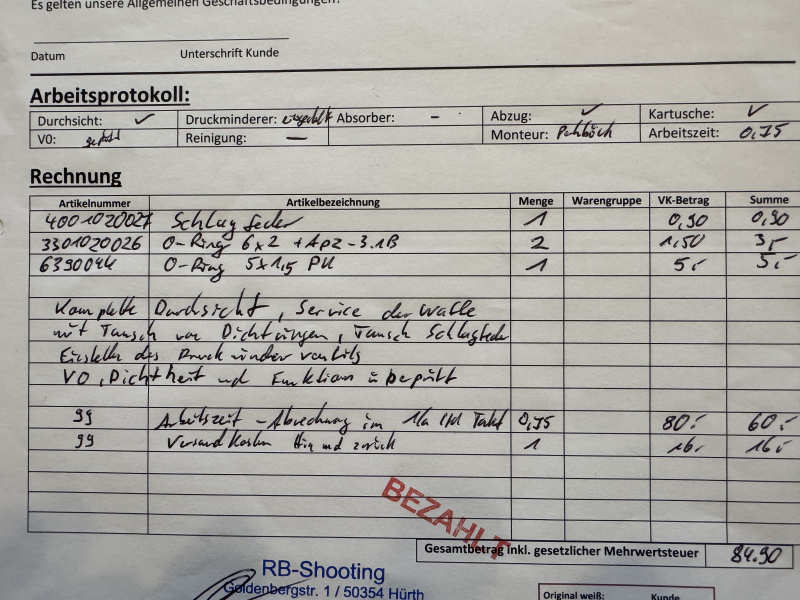 Es gelten unsere Allgemeinen Geschäftsbedingungen!
Datum Unterschrift Kunde
Arbeitsprotokoll:
Durchsicht: ✓ Druckminderer: eingestellt Absorber: - Abzug: ✓ Kartusche: ✓
V0: geprüft Reinigung: — Monteur: Arbeitszeit: 0,75
Rechnung
Artikelnummer Artikelbezeichnung Menge Warengruppe VK-Betrag Summe
4001020027 Schlagfeder 1 0,90 0,90
3301020026 O-Ring 6x2 + APZ-3.1B 2 1,50 3,-
6390044 O-Ring 5x1,5 PU 1 5,- 5,-
Komplette Durchsicht, Service der Waffe
mit Tausch von Dichtungen, Tausch Schlagfeder
Einstellen des Druckminderventils
V0, Dichtheit und Funktion überprüft
99 Arbeitszeit - Abrechnung im 1/4 Std Takt 0,75 80,- 60,-
99 Versandkosten Hin und zurück 1 16,- 16,-
BEZAHLT
Gesamtbetrag inkl. gesetzlicher Mehrwertsteuer 84.90
RB-Shooting
Goldenbergstr. 1 / 50354 Hürth
Original weiß: Kunde